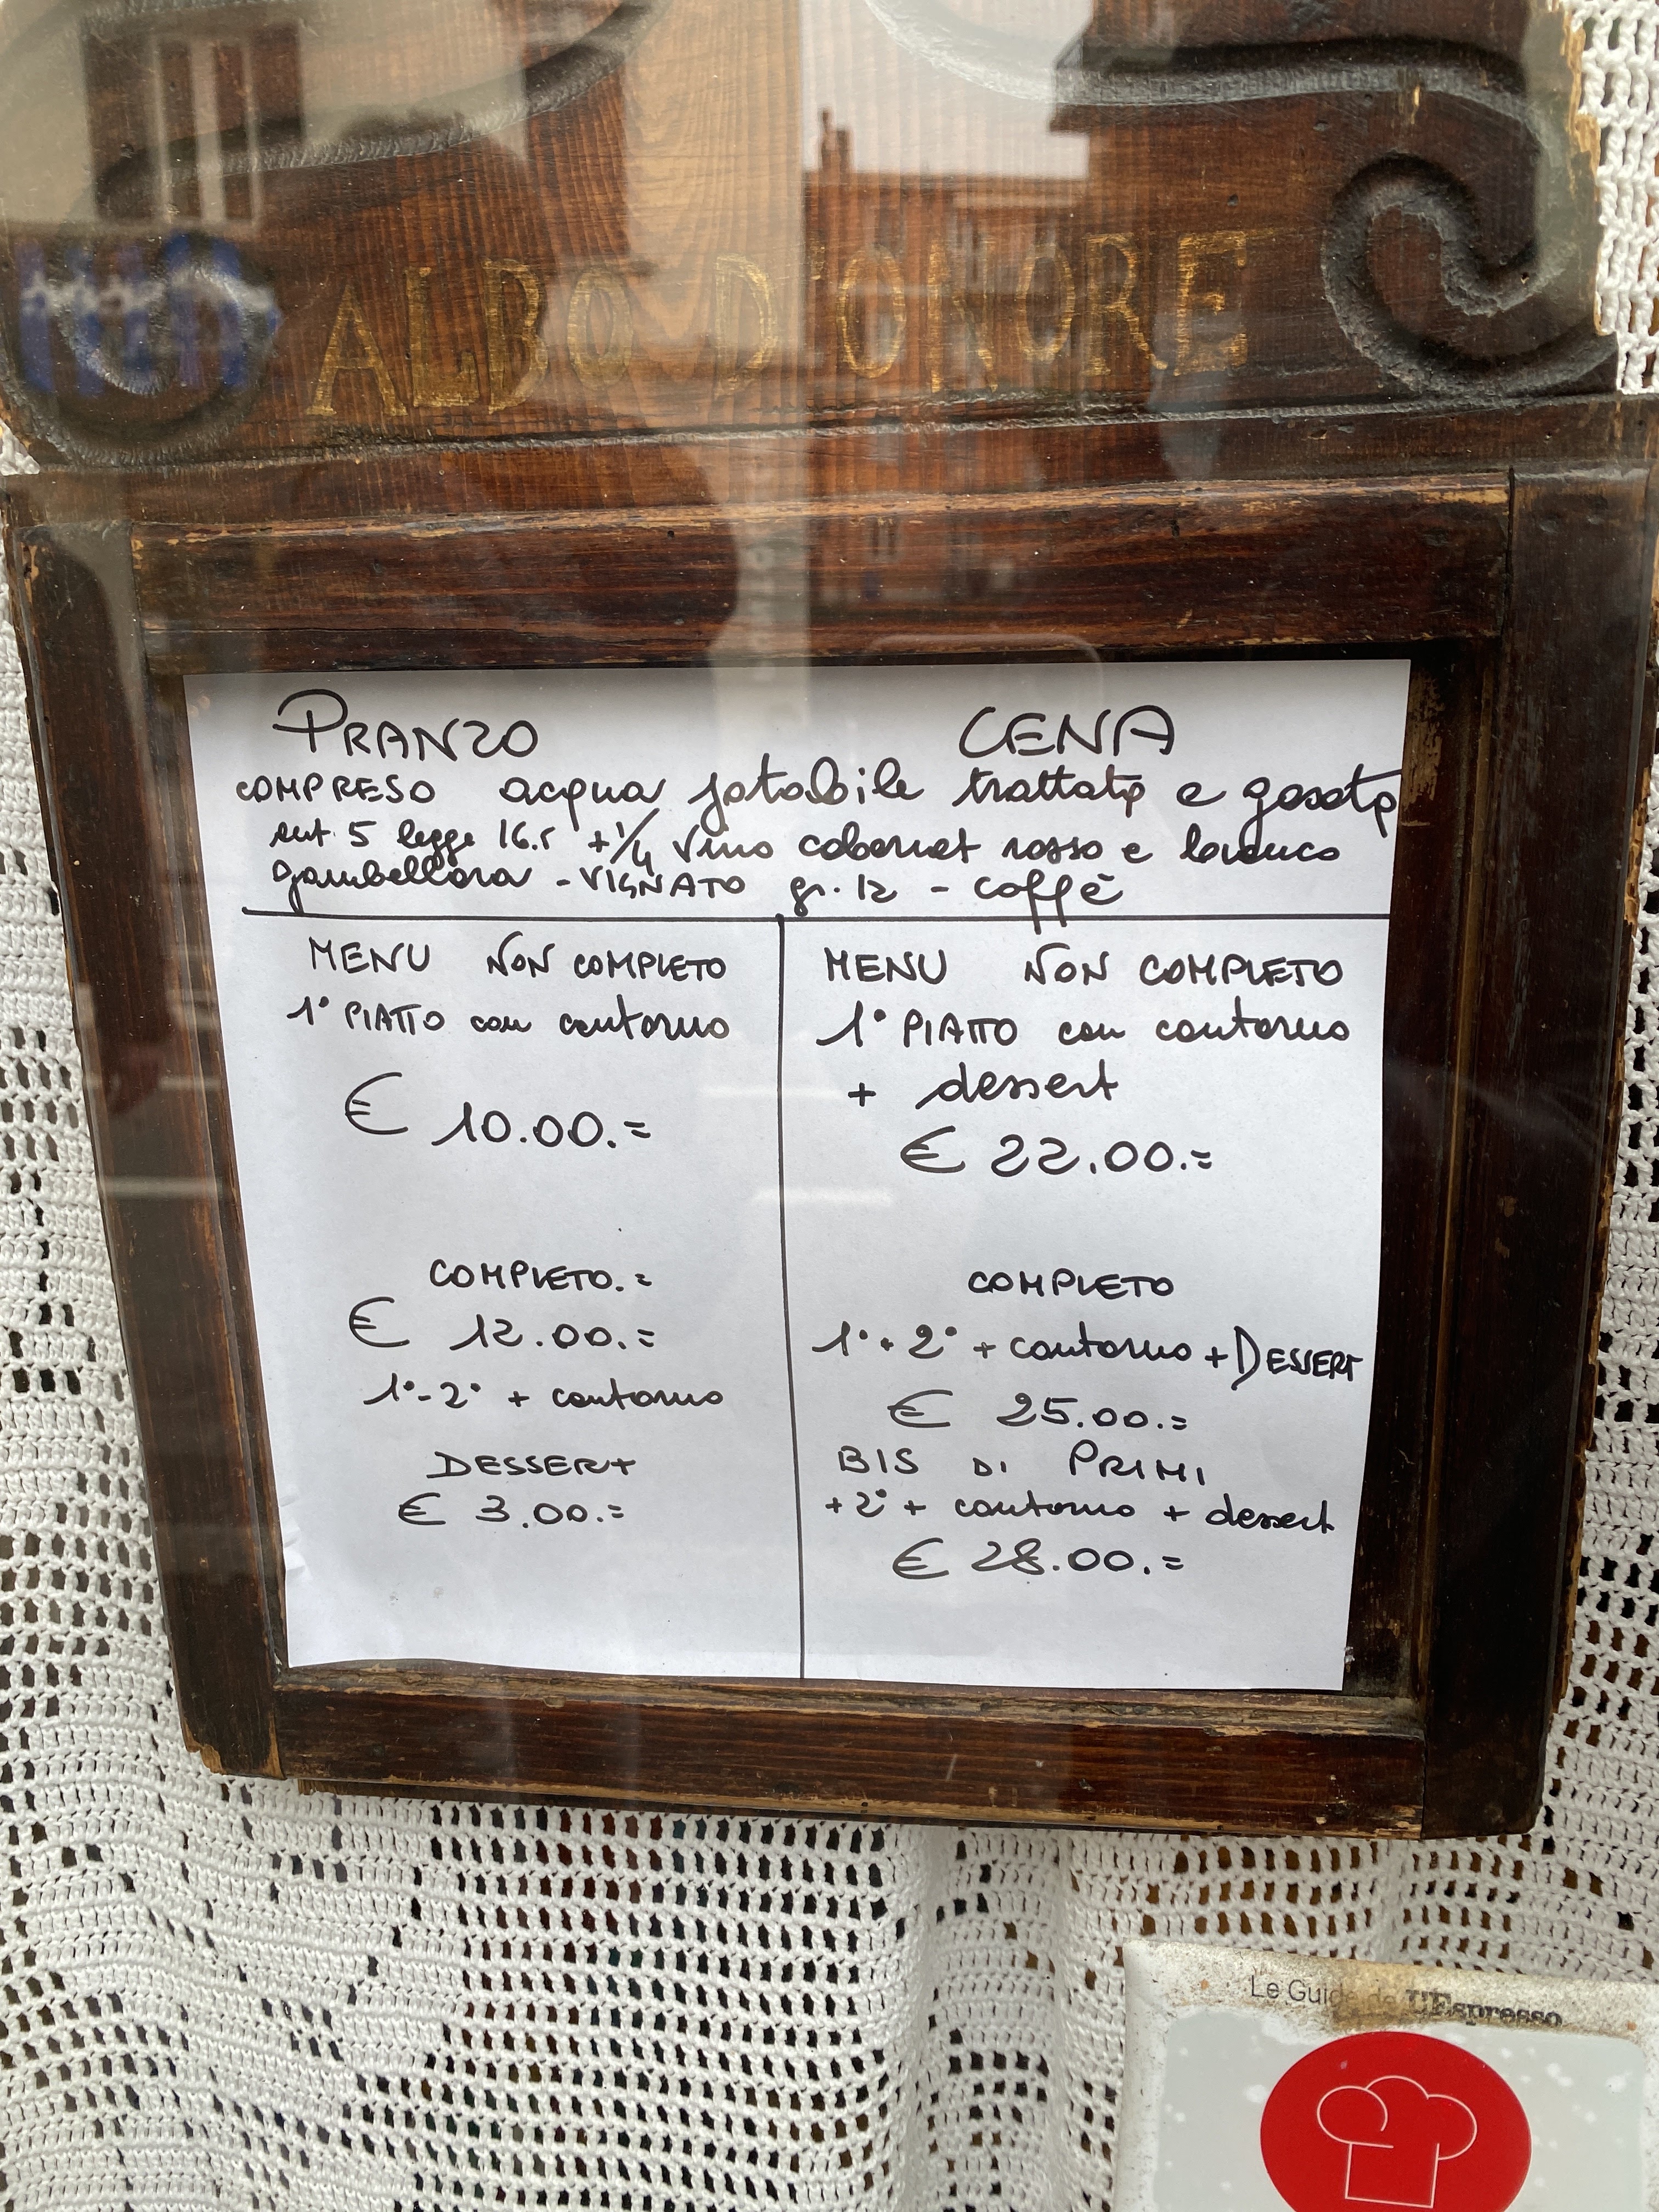 ALBO D'ONORE
PRANZO
CENA
COMPRESO acqua potabile trattata e gasata
art. 5 legge 16.5 + 1/4 vino cabernet rosso e bianco
gambellara - VIGNATO gr. 12 - caffè
MENU NON COMPLETO
1° PIATTO con contorno
€ 10.00.=
COMPLETO.=
€ 12.00.=
1°-2° + contorno
DESSERT
€ 3.00.=
MENU NON COMPLETO
1° PIATTO con contorno
+ dessert
€ 22.00.=
COMPLETO
1°+2° + contorno + DESSERT
€ 25.00.=
BIS DI PRIMI
+2° + contorno + dessert
€ 28.00.=
Le Guide de L'Espresso